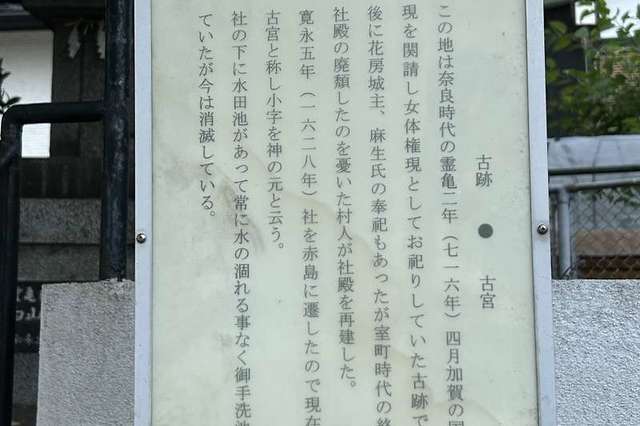 古跡 ● 古宮
この地は奈良時代の霊亀二年（七一六年）四月加賀の国
現を関請し女体権現としてお祀りしていた古跡で
後に花房城主、麻生氏の奉祀もあったが室町時代の終
社殿の廃頽したのを憂いた村人が社殿を再建した。
寛永五年（一六二八年）社を赤島に遷したので現在
古宮と称し小字を神の元と云う。
社の下に水田池があって常に水の涸れる事なく御手洗池
ていたが今は消滅している。